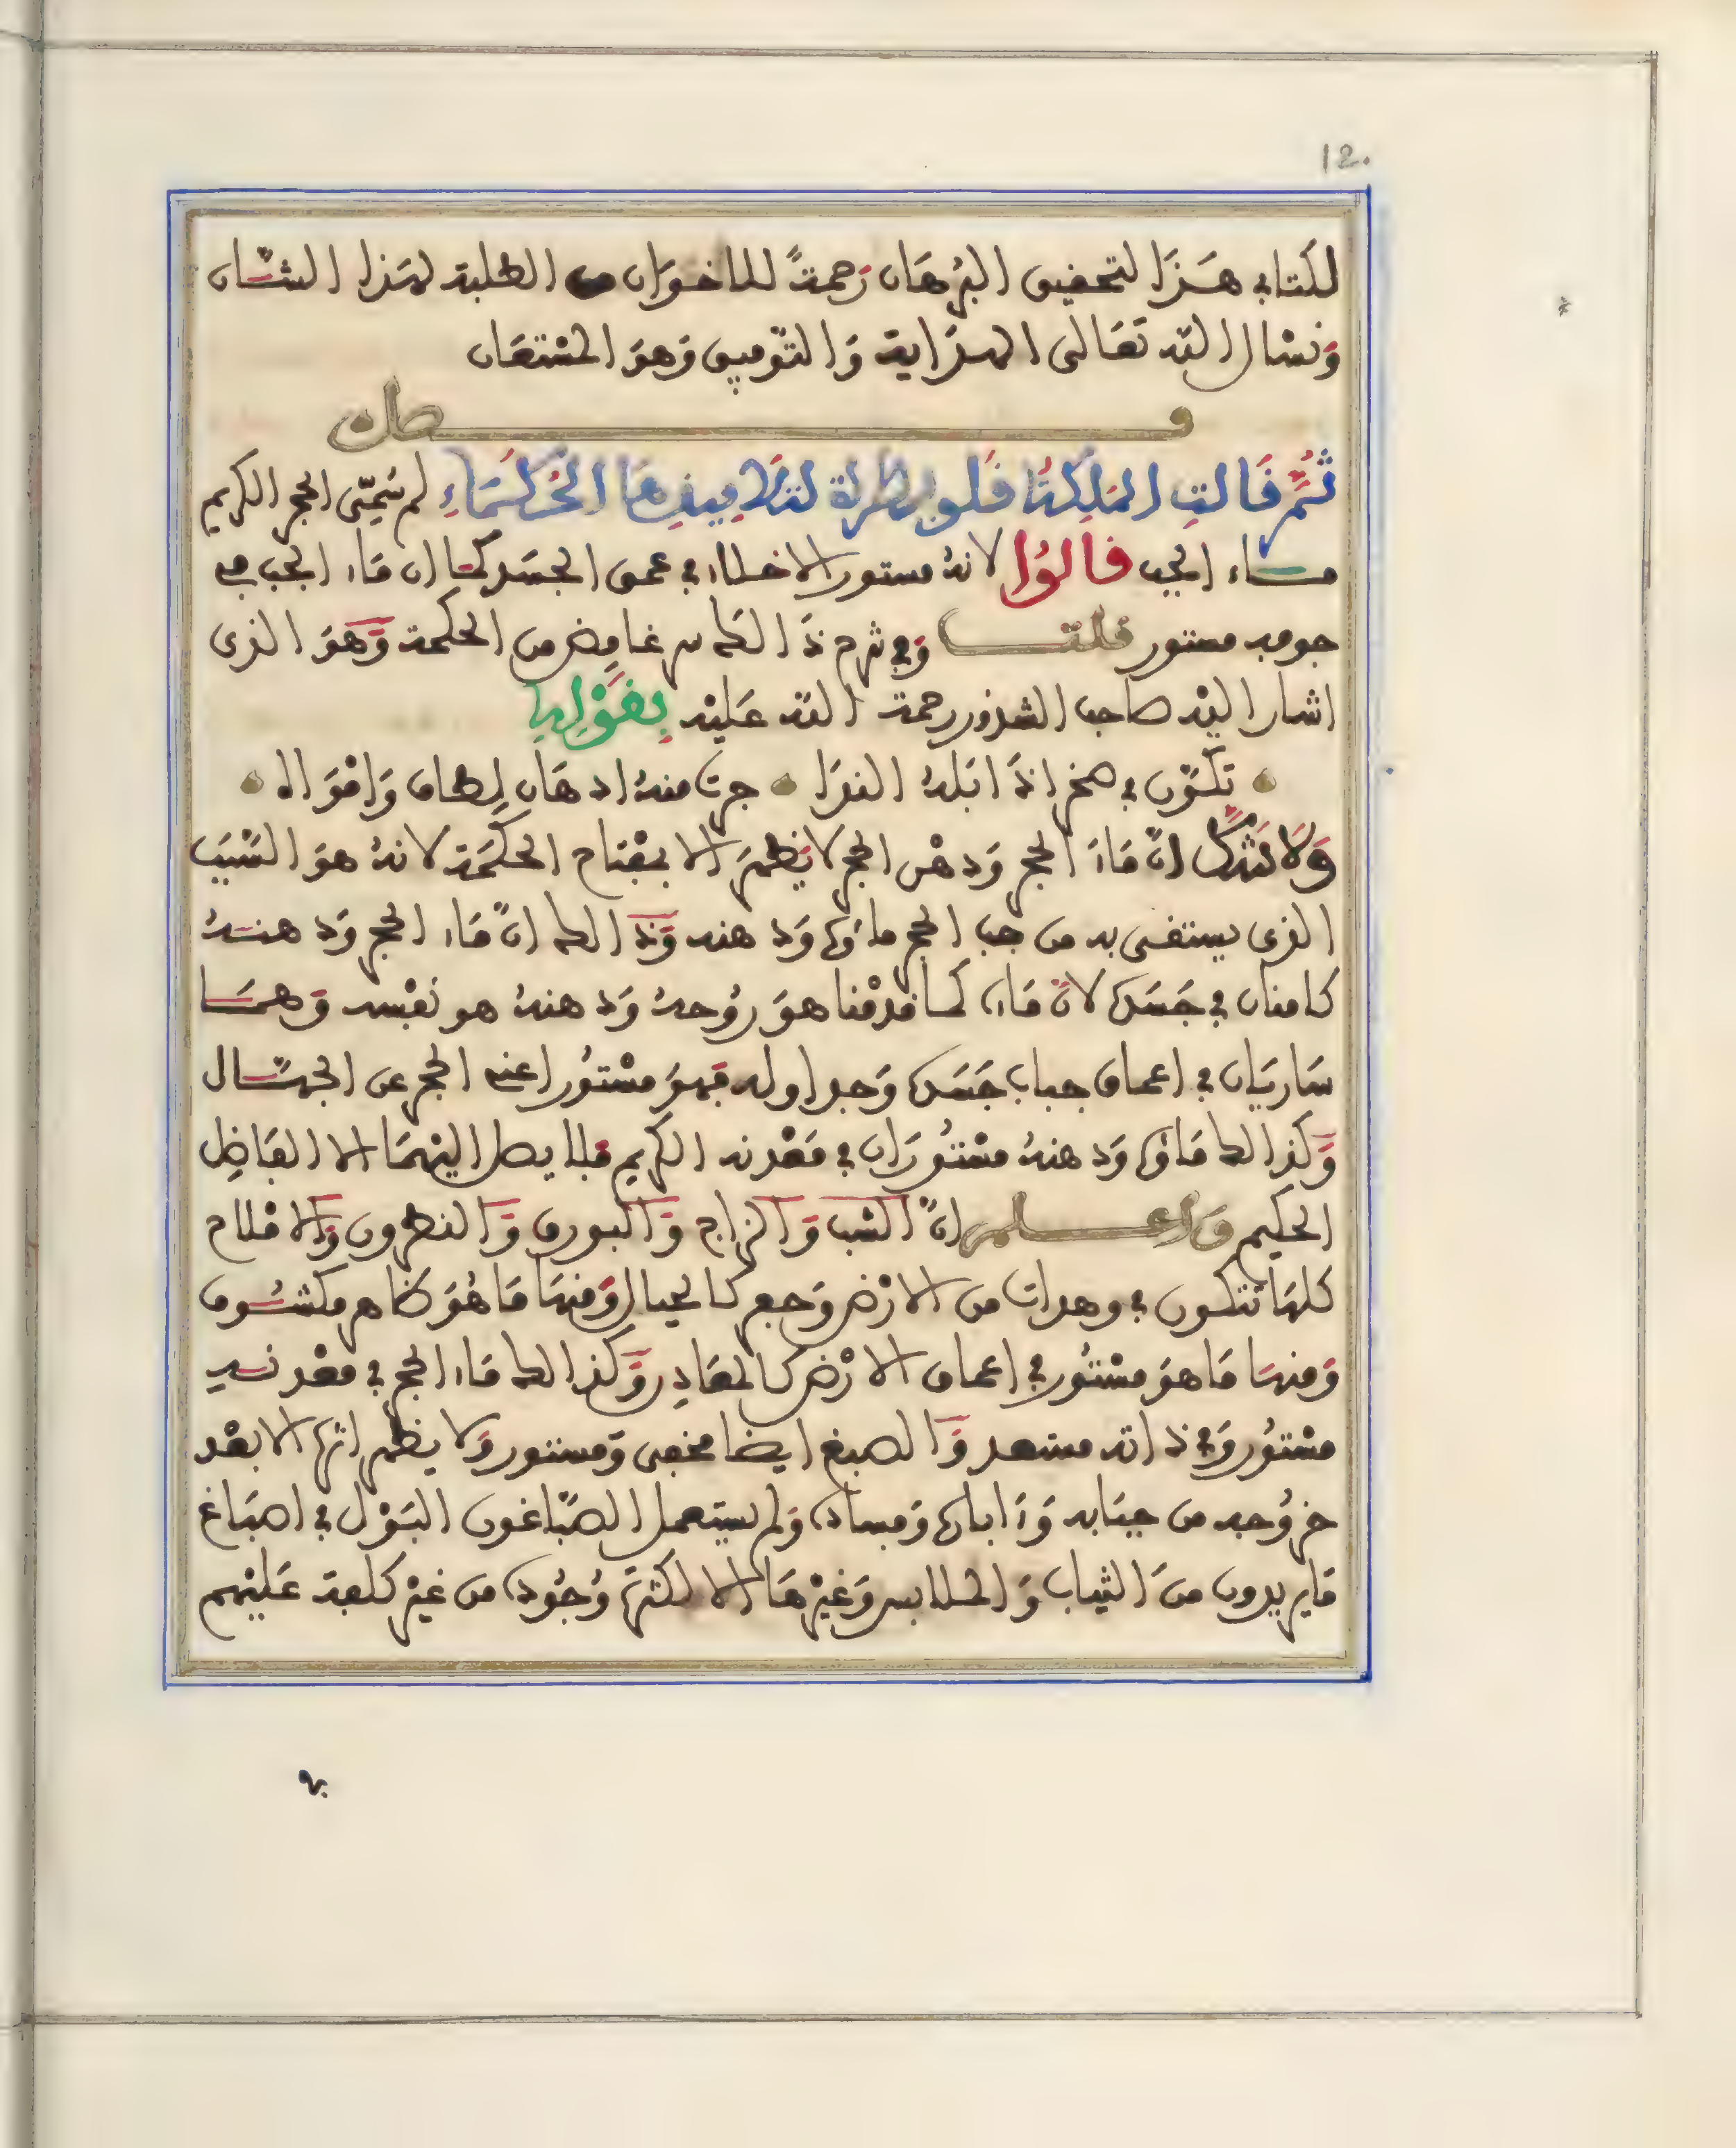 12.
لكتابي هَذَا لتحقيق البُرهَان رَحمةً للاخوَان من الطلبة لهَذا الشّان
وَنسْال اللّه تعَالى الهدَاية وَالتّوفيق وَهوَ المسْتعَان
فصل
ثُمَّ قَالتِ المَلِكَة قلوبطرة لتلاميذهَا الحُكَمَاءِ لم سُمِّي الحجر الكريم
مَاء الجب قالوُا لانهُ مستور الاخلاء في عمق الجسَد كما ان مَاء الجب في
جوفه مستور قلت وَفي شرح ذَالك سر غامِض من الحكمة وَهوَ الذي
اشار اليْه صاحب الشذور رحمة اللّه عَليْه بقَوْلِهِ
تكوّن في صخر اذَا ابَلهُ الندَا جرت منهُ ادهَان لِطاف وَامْوَاه
وَلَا لشك انّ مَاءَ الحجر وَدهْن الحجر لا يَظهرَ الا بمفْتاح الحكمَة لانهُ هوَ السَّبَب
الذي يستقى به من جب الحجر ماؤه وَدهنه وَذالك انّ مَاء الحجر وَدهنهُ
كامنان في جَسَده لانّ مَاءه كما قدمْنا هوَ رُوحهُ وَدهنهُ هو نفْسه وَهمَا
سَاريَان في اعماق جباب جَسَده وَجداوله فهوَ مسْتوُر اعني الحجر عن الجهّال
وَكذالك مَاؤه وَدهنهُ مسْتوُرَان في مَعْدنه الكريم فلا يصل اليْهمَا الا الفَاضِل
الحكيم وَاعلم انّ الشب وَالزاج وَالبورق وَالنطرون وَالامْلاح
كلهَا تتكون في وهدات من الارْض وَجمع كالجبال وَمنهَا مَا هُوَ ظاهر مكشُوف
وَمنهَا مَا هوَ مسْتُور في اعماق الارْض كالمعَادِن وَكذالك مَاء الحجر في معْدنه
مسْتوُر وَفي ذاته مستعد وَالصبغ ايضا مخفى وَمستور وَلا يظهر اثره الا بعْد
خروُجه من جبَابه وَزَ ابانه وَفساده وَلم يستعمل الصّباغون البَوْل في اصبَاغ
مَا يريدون منَ الثيَاب وَالملابس وَغيْرهَا الا لكثرة وُجُوده من غيْر كلفة عَليْهم